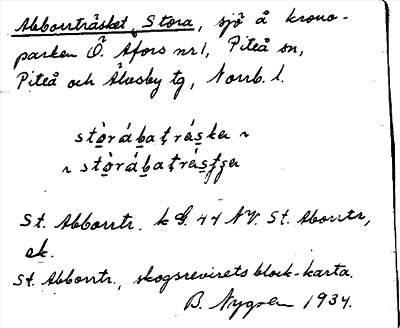 Abborrträsket, Stora, sjö å krono-
parken Ö. Åfors nr 1, Piteå sn,
Piteå och Älvsby tg, Norrb. l.
stò̱rába̱ṭrá̱ska ~
~ stò̱rába̱ṭrá̱stga
St. Abborrtr. k G. 44 NV. St. Aborrtr,
ek.
St. Abborrtr., skogsrevirets block-karta.
B. Nygren 1934.